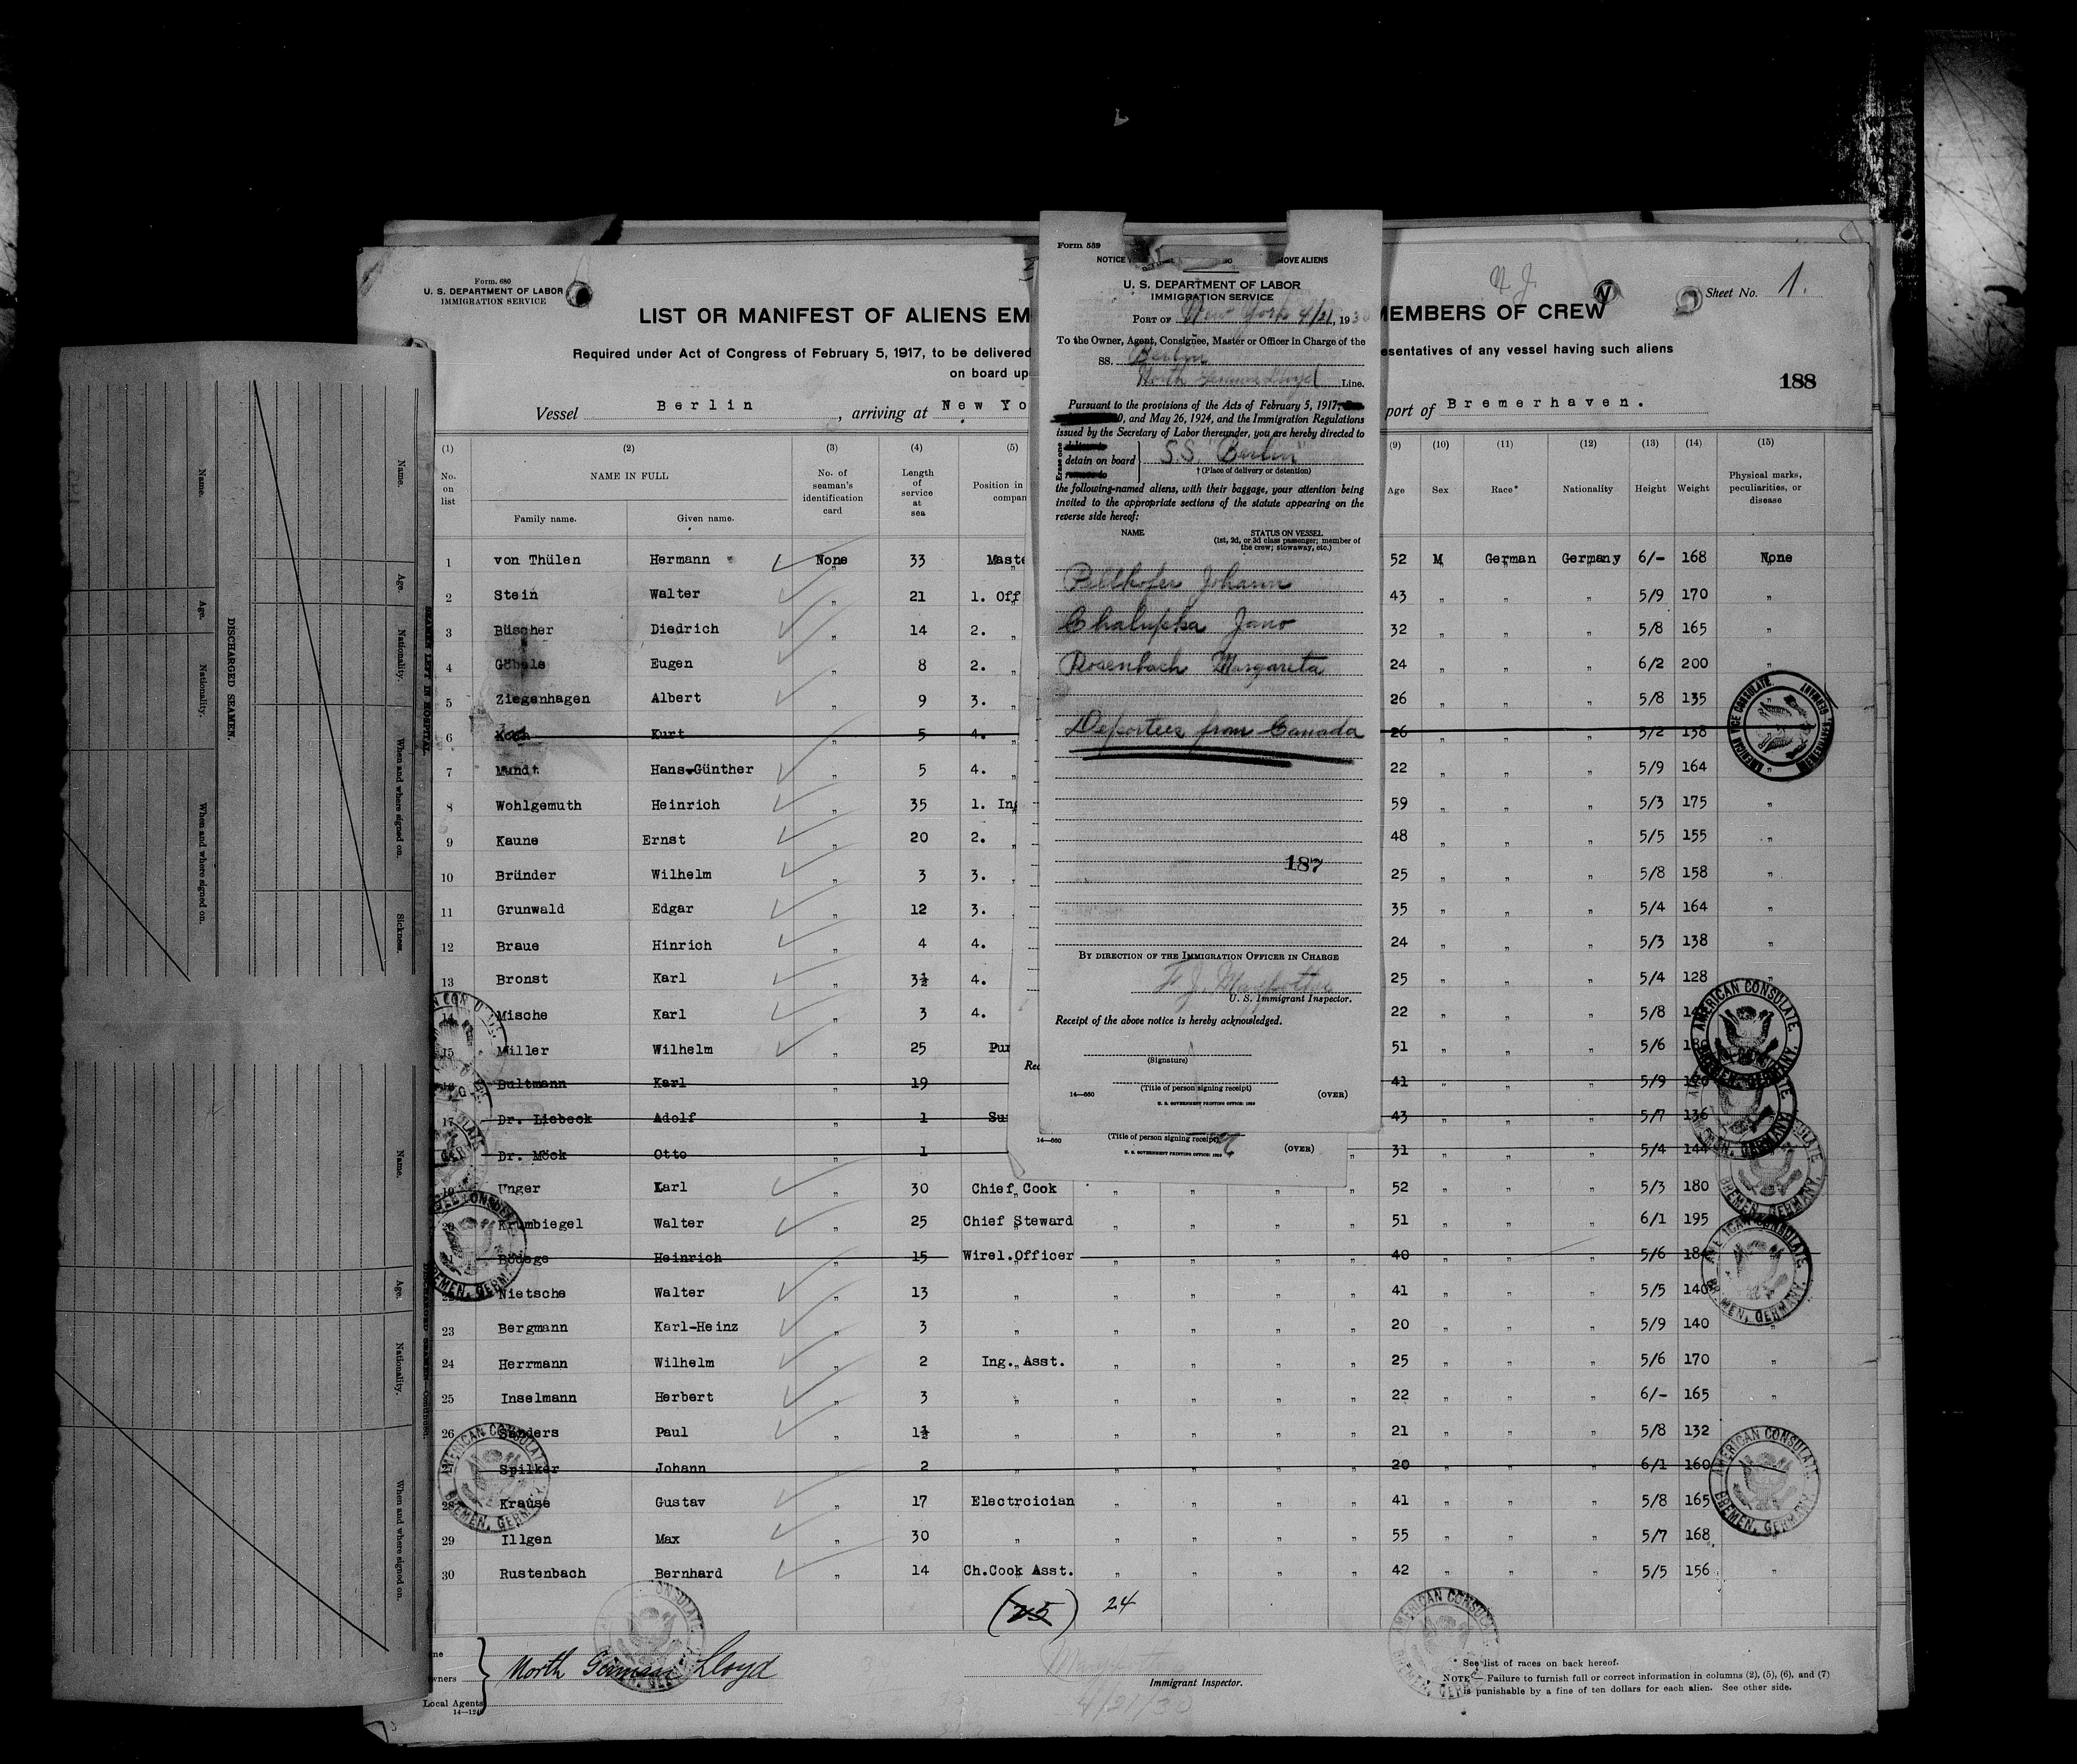 Form. 680
U. S. DEPARTMENT OF LABOR
IMMIGRATION SERVICE
LIST OR MANIFEST OF ALIENS EM
MEMBERS OF CREW
N. J.
N
Sheet No. 1.
Required under Act of Congress of February 5, 1917, to be delivered
esentatives of any vessel having such aliens
on board up
188
Vessel Berlin, arriving at New Yo
port of Bremerhaven.
(1) (2) (3) (4) (5) (9) (10) (11) (12) (13) (14) (15)
No. on list
NAME IN FULL
Family name. Given name.
No. of seaman's identification card
Length of service at sea
Position in compan
Age Sex Race* Nationality Height Weight
Physical marks, peculiarities, or disease
1 von Thülen Hermann None 33 Maste 52 M German Germany 6/- 168 None
2 Stein Walter „ 21 1. Off 43 „ „ „ 5/9 170 „
3 Büscher Diedrich „ 14 2. „ 32 „ „ „ 5/8 165 „
4 Göbels Eugen „ 8 2. „ 24 „ „ „ 6/2 200 „
5 Ziegenhagen Albert „ 9 3. „ 26 „ „ „ 5/8 135 „
6 Koch Kurt „ 5 4. „ 26 „ „ „ 5/2 138
7 Mundt Hans-Günther „ 5 4. „ 22 „ „ „ 5/9 164 „
8 Wohlgemuth Heinrich „ 35 1. Ing 59 „ „ „ 5/3 175 „
9 Kaune Ernst „ 20 2. „ 48 „ „ „ 5/5 155 „
10 Bründer Wilhelm „ 3 3. „ 25 „ „ „ 5/8 158 „
11 Grunwald Edgar „ 12 3. „ 35 „ „ „ 5/4 164 „
12 Braue Hinrich „ 4 4. „ 24 „ „ „ 5/3 138 „
13 Bronst Karl „ 3½ 4. 25 „ „ „ 5/4 128 „
14 Mische Karl „ 3 4. 22 „ „ „ 5/8
15 Miller Wilhelm „ 25 Pur 51 „ „ „ 5/6
16 Bultmann Karl „ 19 41 „ „ „ 5/9
17 Dr. Liebeck Adolf „ 1 Su 43 „ „ „ 5/7 136
Dr. Möck Otto „ 1 „ 31 „ „ „ 5/4 144
19 Unger Karl „ 30 Chief Cook „ „ „ „ 52 „ „ „ 5/3 180
20 Krumbiegel Walter „ 25 Chief Steward „ „ „ „ 51 „ „ „ 6/1 195
Bödege Heinrich „ 15 Wirel.Officer „ „ „ „ 40 „ „ „ 5/6 184
22 Nietsche Walter „ 13 „ „ „ „ „ 41 „ „ „ 5/5 140
23 Bergmann Karl-Heinz „ 3 „ „ „ „ „ 20 „ „ „ 5/9 140 „
24 Herrmann Wilhelm „ 2 Ing. Asst. „ „ „ „ 25 „ „ „ 5/6 170 „
25 Inselmann Herbert „ 3 „ „ „ „ „ 22 „ „ „ 6/- 165 „
26 Sanders Paul „ 1½ „ „ „ „ „ 21 „ „ „ 5/8 132
Spilker Johann „ 2 „ „ „ „ „ 20 „ „ „ 6/1 160
28 Krause Gustav „ 17 Electrcician „ „ „ „ 41 „ „ „ 5/8 165
29 Illgen Max „ 30 „ „ „ „ „ 55 „ „ „ 5/7 168 „
30 Rustenbach Bernhard „ 14 Ch.Cook Asst. „ „ „ „ 42 „ „ „ 5/5 156 „
(25) 24
Owners
Local Agents
North German Lloyd
14—124
Immigrant Inspector.
4/21/30
See list of races on back hereof.
NOTE.—Failure to furnish full or correct information in columns (2), (5), (6), and (7)
is punishable by a fine of ten dollars for each alien. See other side.
Form 559
NOTICE
MOVE ALIENS
U. S. DEPARTMENT OF LABOR
IMMIGRATION SERVICE
PORT OF New York 4/21, 1930
To the Owner, Agent, Consignee, Master or Officer in Charge of the
SS. Berlin
North German Lloyd Line.
Pursuant to the provisions of the Acts of February 5, 1917,
0, and May 26, 1924, and the Immigration Regulations
issued by the Secretary of Labor thereunder, you are hereby directed to
Erase one
detain on board SS. "Berlin"
† (Place of delivery or detention)
the following-named aliens, with their baggage, your attention being
invited to the appropriate sections of the statute appearing on the
reverse side hereof:
NAME STATUS ON VESSEL
(1st, 2d, or 3d class passenger; member of
the crew; stowaway, etc.)
Pellhofer Johann
Chalupka Jano
Rosenbach Margareta
Deportees from Canada
187
BY DIRECTION OF THE IMMIGRATION OFFICER IN CHARGE
U. S. Immigrant Inspector.
Receipt of the above notice is hereby acknowledged.
(Signature)
(Title of person signing receipt)
14—660 (OVER)
U. S. GOVERNMENT PRINTING OFFICE: 1929
Rec
(Title of person signing receipt)
14—660 (OVER)
U. S. GOVERNMENT PRINTING OFFICE: 1929
SEAMEN LEFT IN HOSPITAL
Name. Age. Nationality. When and where signed on. Sickness.
DISCHARGED SEAMEN.
Name. Age. Nationality. When and where signed on.
DISCHARGED SEAMEN—Continued.
Name. Age. Nationality. When and where signed on.
AMERICAN VICE CONSULATE
BREMERHAVEN, GERMANY
AMERICAN CONSULATE
BREMEN, GERMANY.
AMERICAN CONSULATE
BREMEN, GERMANY.